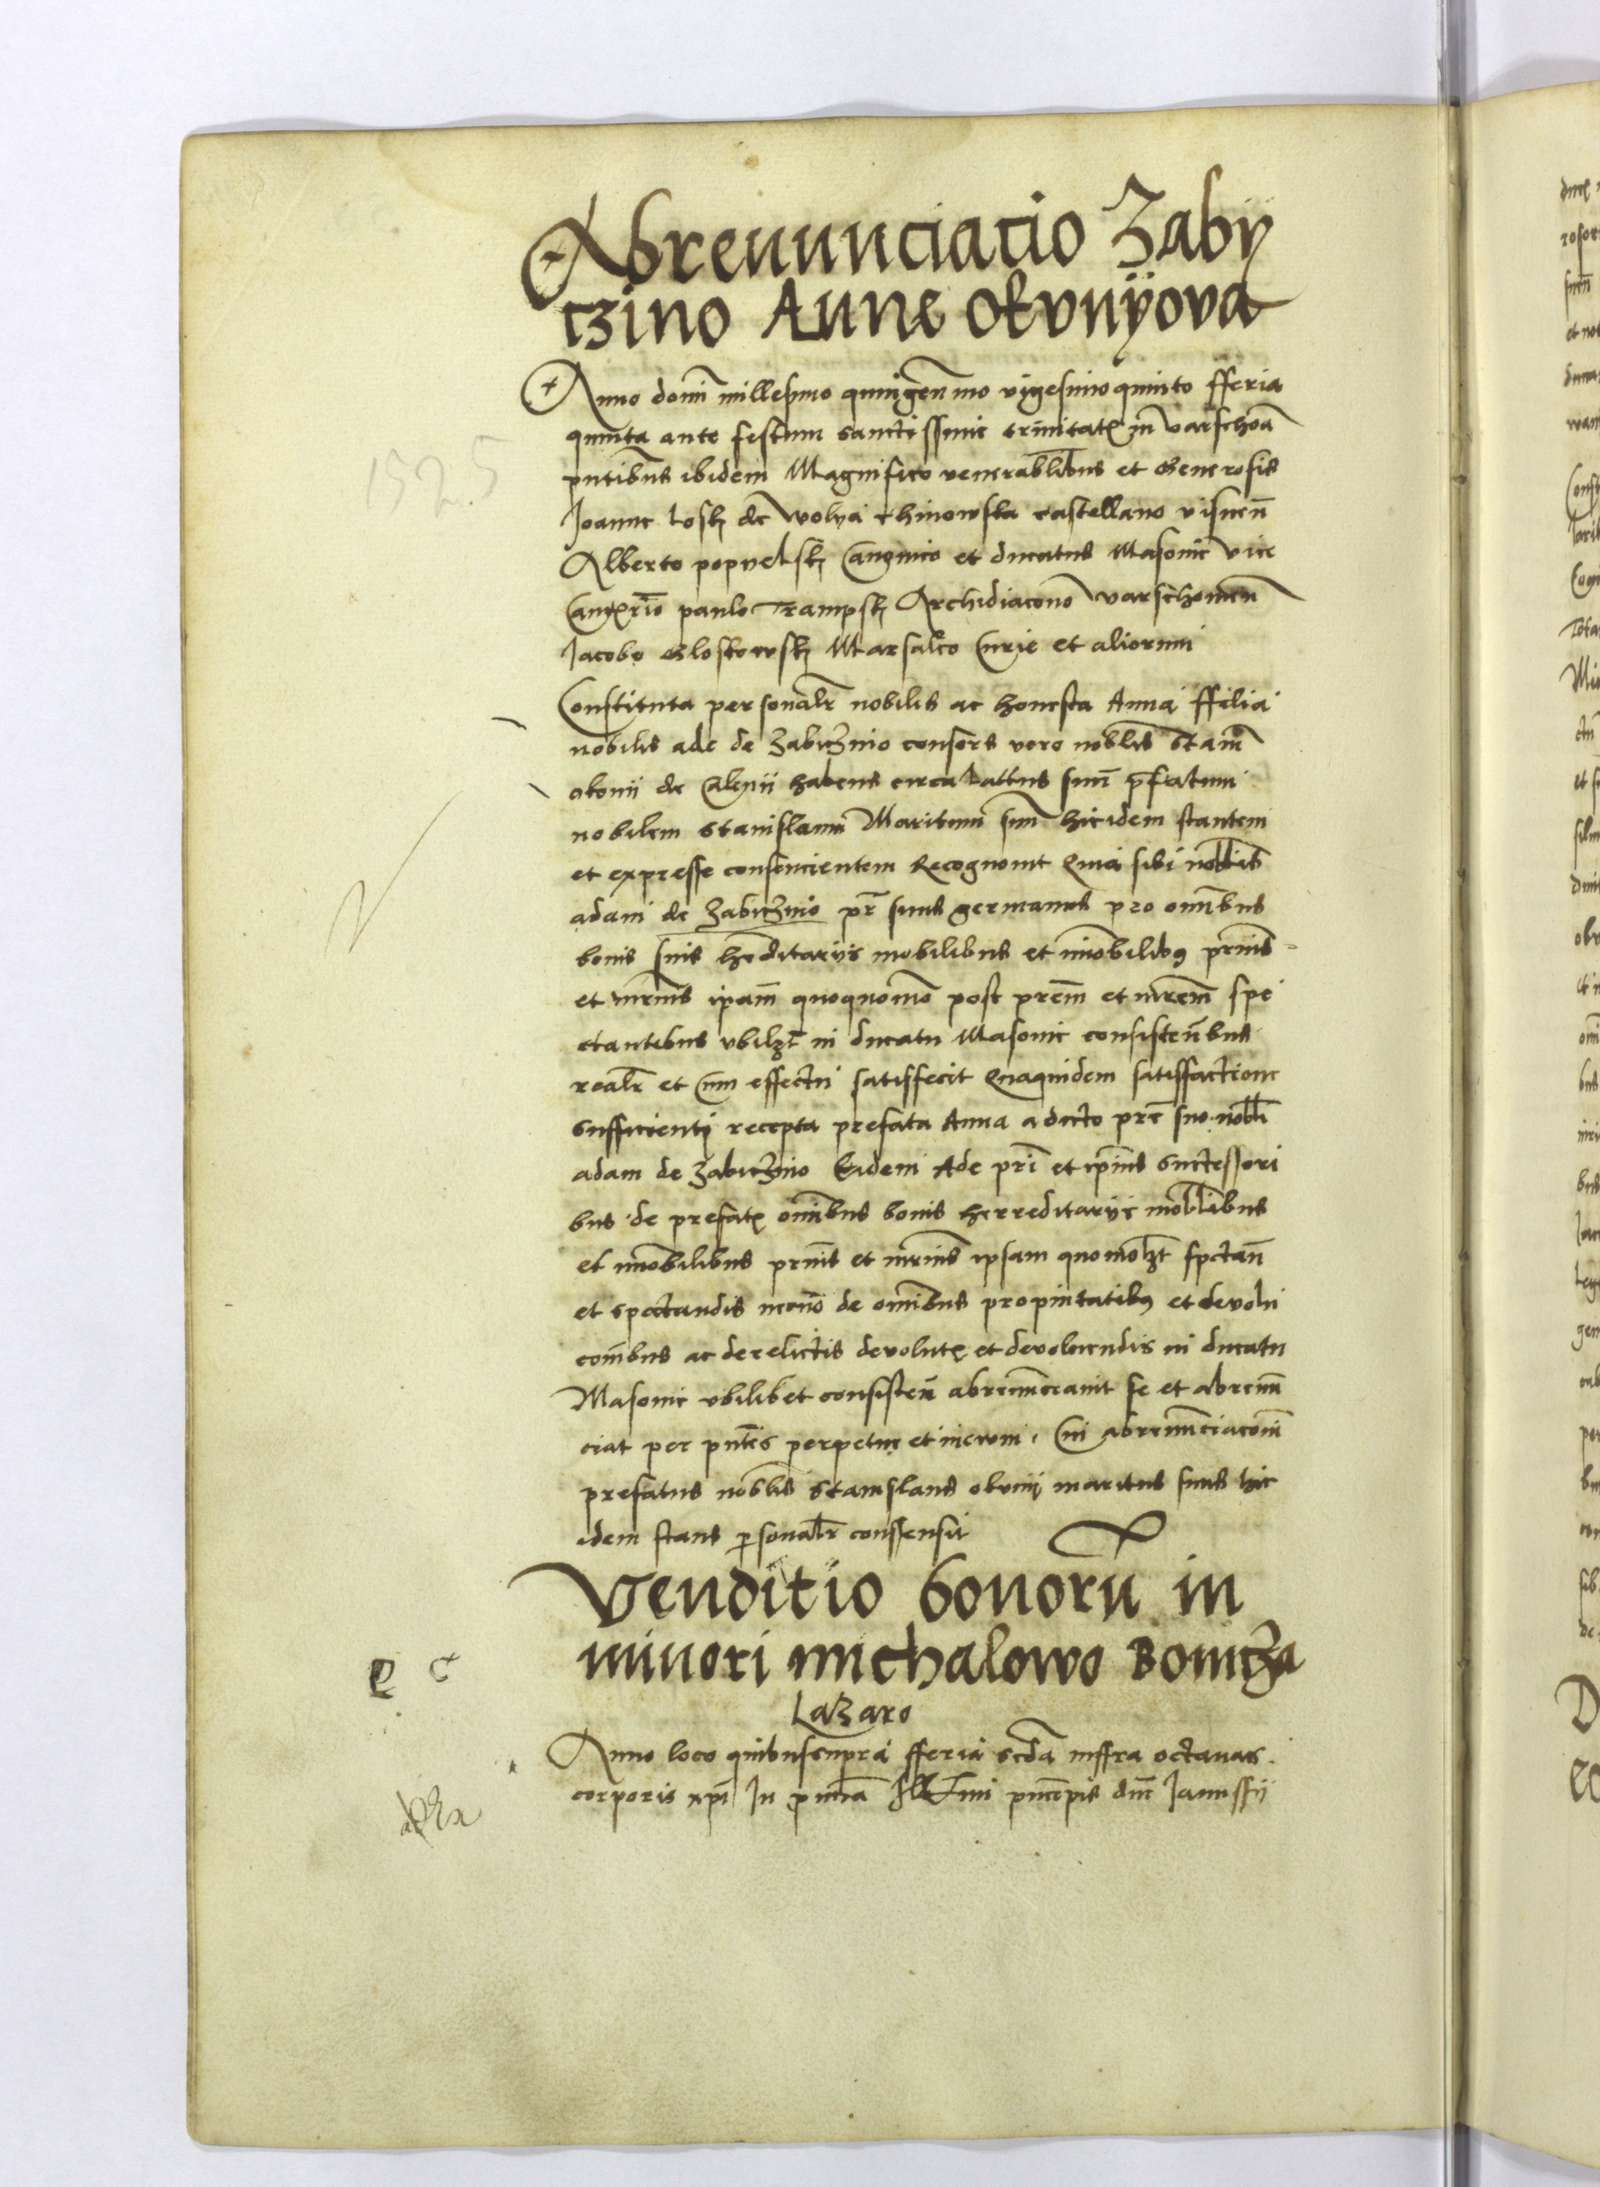 Abrenunciacio Zaby
czino Anne okvnyova
Anno domī millesimo quingen̄mo vigesimoquinto fferia
quinta ante festum sanctissime trinitatꝭ in varschoa
pn̄tibus ibidem Magnifico venerabl̄ibus et Generosis
Joanne Losky de Wolya chinowska castellano visnen̄
Alberto popyelsky Canonico et ducatus Masovie vice
Canc̄rio paulo Trampsky Archidiacono varschovien̄
Jacobo Gloskowsky Marsalco Curie et aliorum
Constituta personalr̄ nobilis ac honesta Anna ffilia
nobilis ade de Zabiczino consors vero nobl̄is Stanī
okonii de Calenii habens circa lattus suū prefatum
nobilem Stanislaum Maritum suū hicidem stantem
et expresse consencientem Recognovit Quia sibi nobl̄is
adam de Zabiczino pr̄ suus germanus pro omībus
bonis suis hrēditariis mobilibus et imōbilibꝰ pr̄nis
et mr̄nis ipam̄ quoquomō post prēm et mrēm spe
ctantibus vbilꝫt in ducatu Masovie consisten̄bus
realr̄ et cum effectu satisfecit Quaquidem satisfactione
sufficienti recepta prefata Anna a dicto prē suo nobl̄i
adam de Zabiczino Eidem Ade pri̅ et ipīus successori
bus de prefatꝭ omībus bonis herreditariis mobl̄ibus
et imōbilibus pr̄nis et mr̄nis ipsam quomol̄ꝫt spectan̄
et spectandis necnō de omībus propinitatibꝰ et devolu
comb̄us ac derelictis devolutꝭ et devoluendis in ducatu
Masovie vbilibet consisten̄ abrenunciavit se et abrenū
ciat per pn̄tes perpetue et in evum. Cui abrenun̄ciacoī
prefatus nobl̄is Stanislaus okunij maritus suus hic
idem stans personalr̄ consensit
Venditio bonorū in
minori michalowo Bonicza
Lazaro
Anno loco quibus supra fferia scd̄a inffra octavas
corporis xpī In pn̄cia Ill̄mi prīncipis dnī Janussii